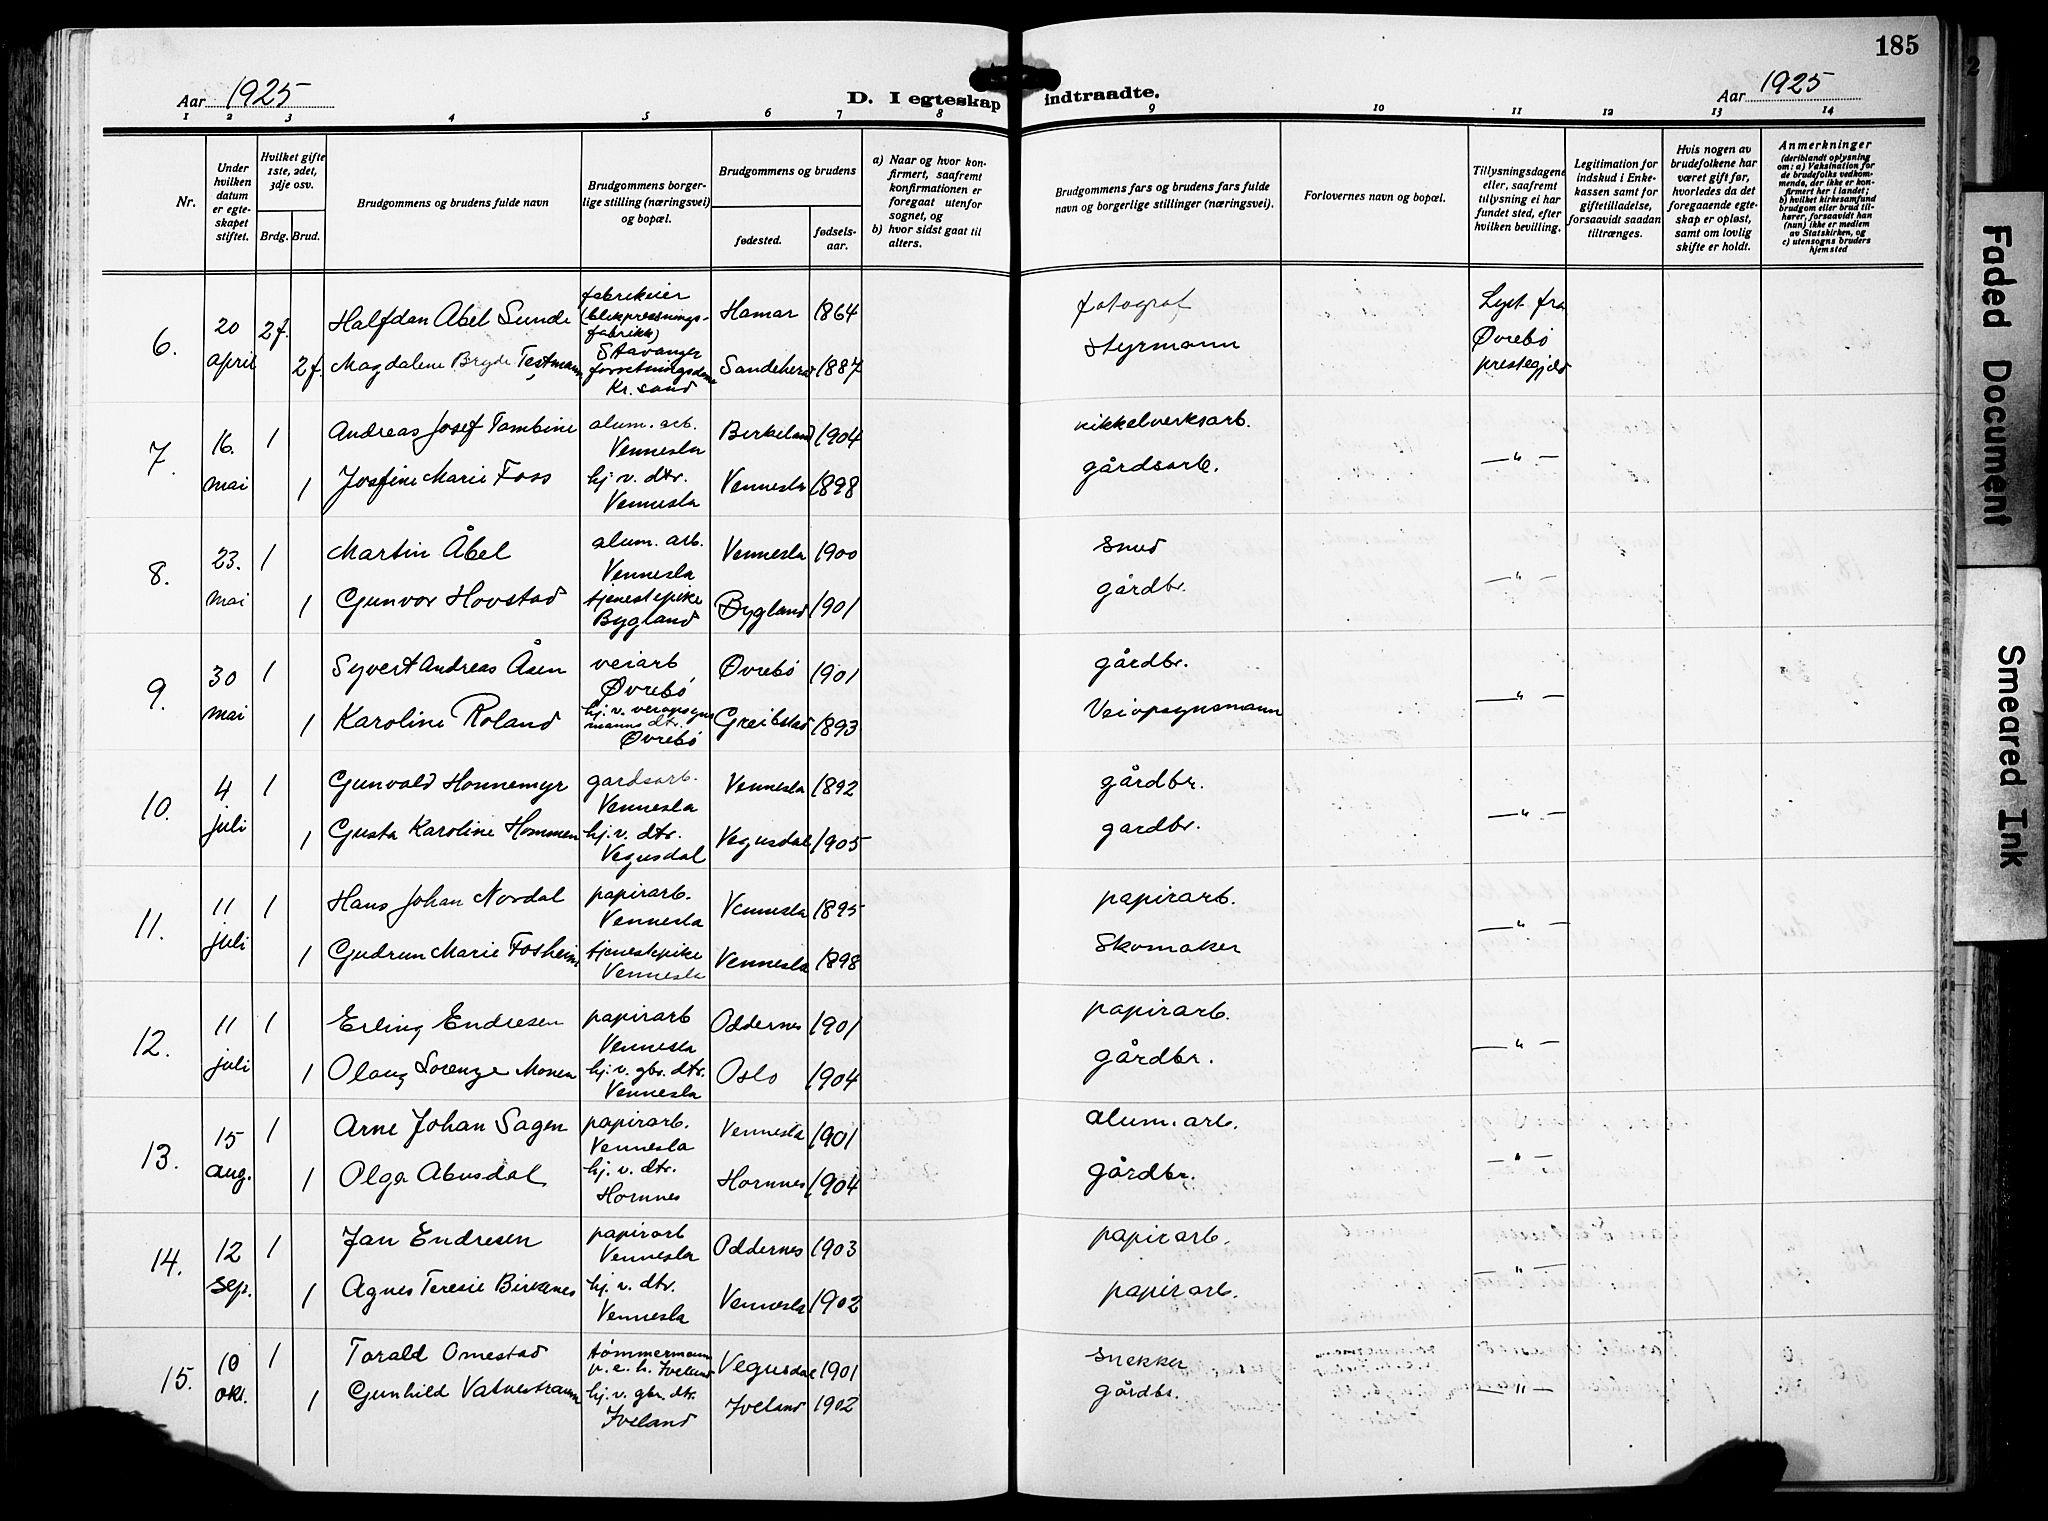 185
Aar 1925
D. I egteskap indtraadte.
Aar 1925
1 2 3 4 5 6 7 8 9 10 11 12 13 14
Nr.
Under hvilken datum er egteskapet stiftet.
Hvilket gifte 1ste, 2det, 3dje osv.
Brdg. Brud.
Brudgommens og brudens fulde navn
Brudgommens borgerlige stilling (næringsvei) og bopæl.
Brudgommens og brudens
fødested.
fødselsaar.
a) Naar og hvor konfirmert, saafremt konfirmationen er foregaat utenfor sognet, og
b) hvor sidst gaat til alters.
Brudgommens fars og brudens fars fulde navn og borgerlige stillinger (næringsvei).
Forlovernes navn og bopæl.
Tillysningsdagene eller, saafremt tillysning ei har fundet sted, efter hvilken bevilling.
Legitimation for indskud i Enkekassen samt for giftetilladelse, forsaavidt saadan tiltrænges.
Hvis nogen av brudefolkene har været gift før, hvorledes da det foregaaende egteskap er opløst, samt om lovlig skifte er holdt.
Anmerkninger
(deriblandt oplysning om: a) Vaksination for de brudefolks vedkommende, der ikke er konfirmert her i landet; b) hvilket kirkesamfund brudgom eller brud tilhører, forsaavidt han (hun) ikke er medlem av Statskirken, og c) utensogns bruders hjemsted
6. 20 april 2 f. Halfdan Abel Sunde fabrikeier (blikpresningsfabrikk) Stavanger Hamar 1864 fotograf Lyst fra Øvrebø prestegjeld
2 f. Magdalene Bryde Testmann forretningsdame Kr. sand Sandeherad 1887 styrmann
7. 16. mai 1 Andreas Josef Tambine alum. arb. Vennesla Birkeland 1904 nikkelverksarb. —"—
1 Josfine Marie Foss hj. v. dtr. Vennesla Vennesla 1898 gårdsarb.
8. 23. mai 1 Martin Åbel alum. arb. Vennesla Vennesla 1900 smed —"—
1 Gunvor Hovstad tjenestepike Bygland Bygland 1901 gårdbr.
9. 30 mai 1 Syvert Andreas Åsen veiarb Øvrebö Øvrebö 1901 gårdbr. —"—
1 Karoline Roland hj. v. veiopsynsmanns dtr. Øvrebö Greibstad 1893 Veiopsynsmann
10. 4 juli 1 Gunvald Honnemyr gardsarb. Vennesla Vennesla 1892 gårdbr. —"—
1 Gusta Karoline Hommen hj. v. dtr. Vegusdal Vegusdal 1905 gardbr.
11. 11 juli 1 Hans Johan Nordal papirarb. Vennesla Vennesla 1895 papirarb. —"—
1 Gudrun Marie Fosheim tjenestepike Vennesla Vennesla 1898 Skomaker
12. 11 juli 1 Erling Endresen papirarb Vennesla Oddernes 1901 papirarb. —"—
1 Olaug Lorenze Monen hj. v. gbr. dtr. Vennesla Oslo 1904 gårdbr.
13. 15 aug. 1 Arne Johan Sagen papirarb. Vennesla Vennesla 1901 alum. arb. —"—
1 Olga Abusdal hj. v. dtr. Hornnes Hornnes 1904 gårdbr.
14. 12 sep. 1 Jan Endresen papirarb Vennesla Oddernes 1903 papirarb. —"—
1 Agnes Teresie Birkenes hj. v. dtr. Vennesla Vennesla 1902 papirarb.
15. 10 okt. 1 Torald Omestad tömmermann v. e. h. Iveland Vegusdal 1901 snekker —"—
1 Gunhild Vatnestraum hj. v. gbr. dtr. Iveland Iveland 1902 gårdbr.
2
Faded Document
Smeared Ink